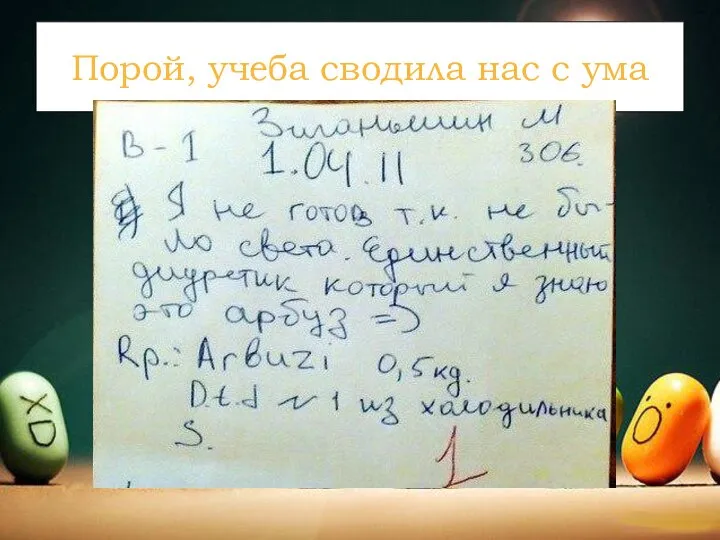 Порой, учеба сводила нас с ума
Зиганьшин М
В-1 1.04.11 306.
Я не готов т.к. не бы-
ло света. Единственный
диуретик который я знаю
это арбуз =)
Rp.: Arbuzi 0,5кд.
D.t.d N 1 из холодильника
S.
1
XD